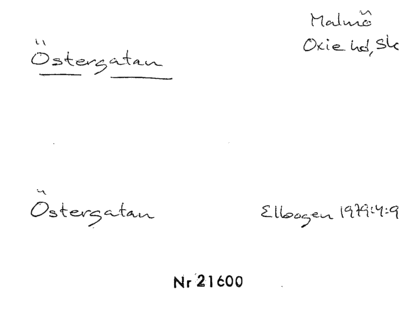 Östergatan
Malmö
Oxie hd, Sk
Östergatan
Elbogen 1979:4:9
Nr 21600